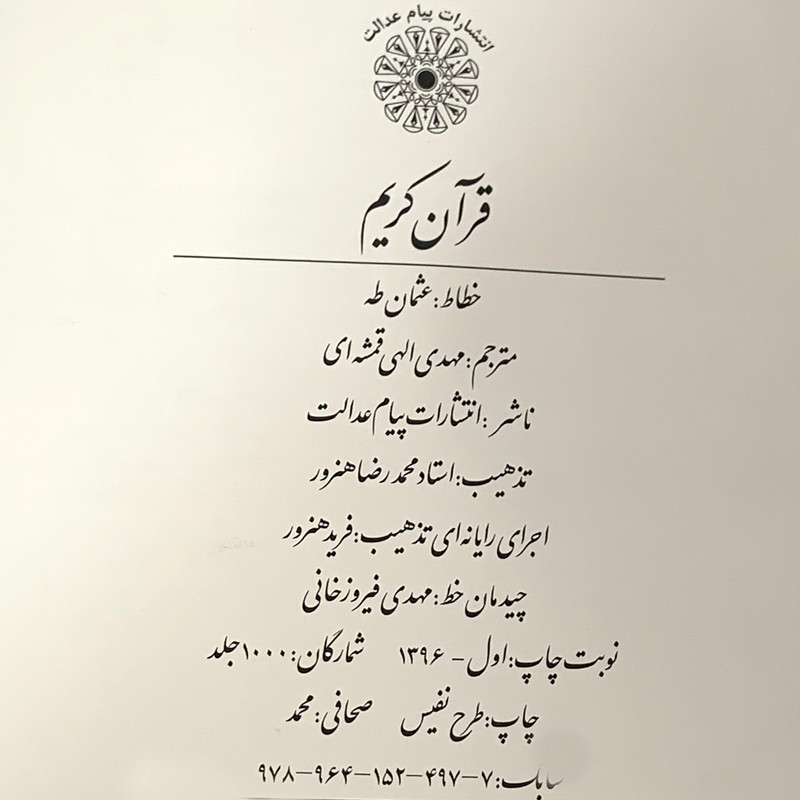 انتشارات پیام عدالت
قرآن کریم
خطاط: عثمان طه
مترجم: مهدی الهی قمشه ای
ناشر: انتشارات پیام عدالت
تذهیب: استاد محمد رضا هنرور
اجرای رایانه ای تذهیب: فرید هنرور
چیدمان خط: مهدی فیروزخانی
نوبت چاپ: اول - ۱۳۹۶ شمارگان: ۱۰۰۰ جلد
چاپ: طرح نفیس صحافی: محمد
۹۷۸-۹۶۴-۱۵۲-۴۹۷-۷